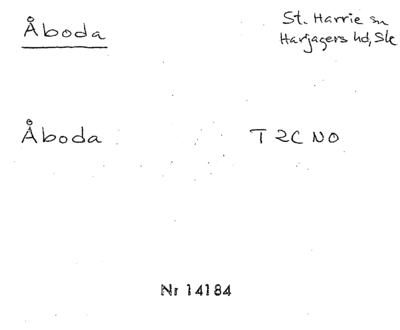 Åboda
St. Harrie sn
Harjagers hd, Sk
Åboda T 2C NO
Nr 14184